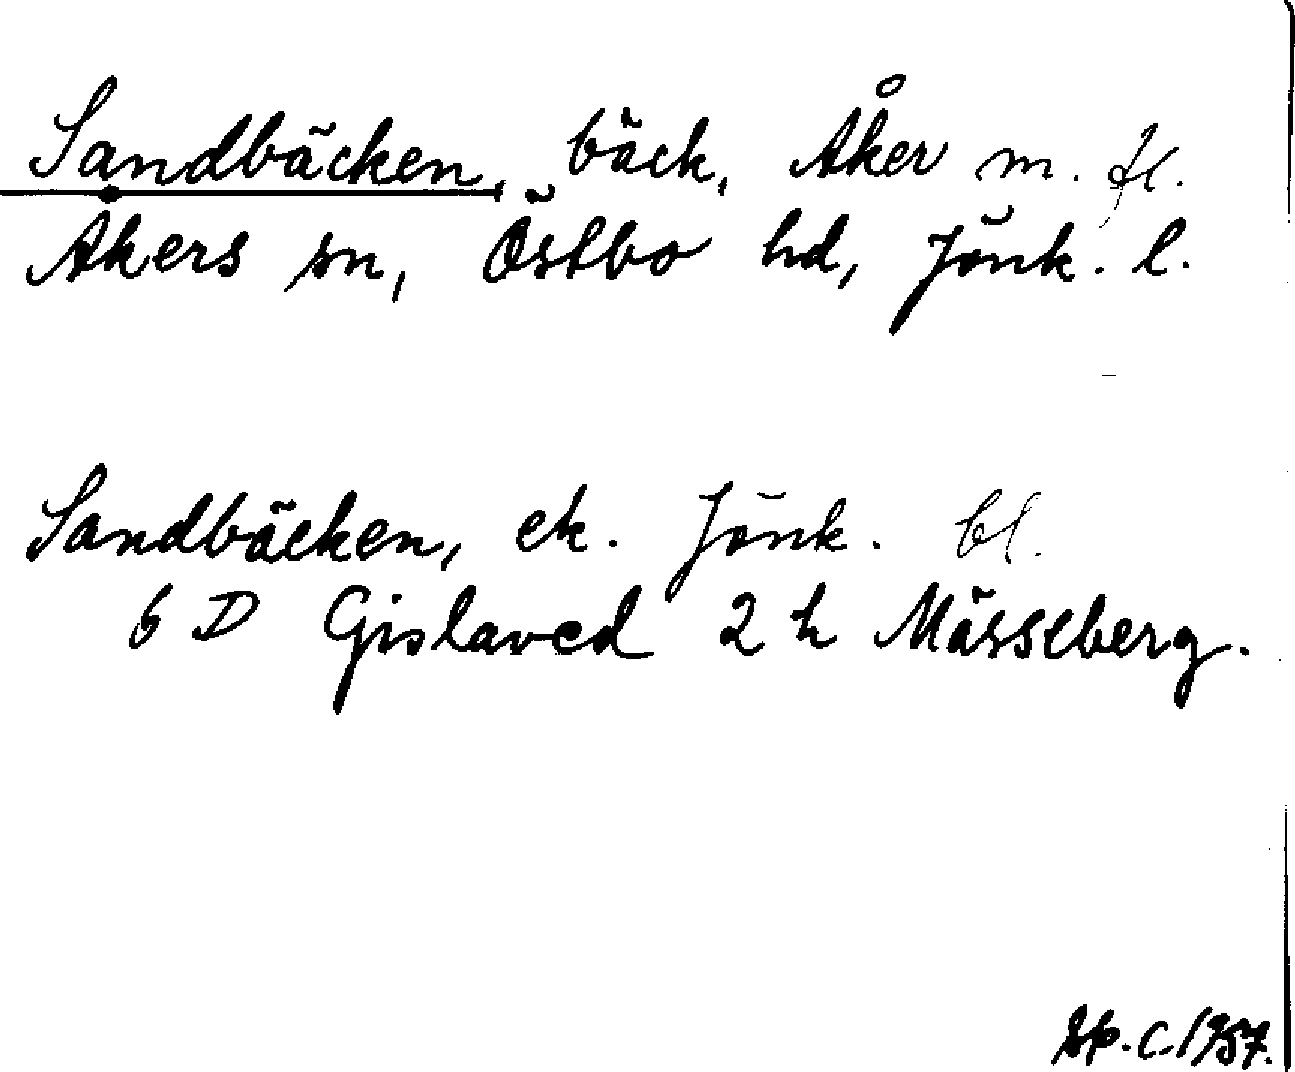 Sandbäcken, bäck, Åker m. fl.
Åkers sn, Östbo hd, Jönk. l.
Sandbäcken, ek. Jönk. bl.
6 D Gislaved 2 h Mässeberg.
Sp. C. 1957.